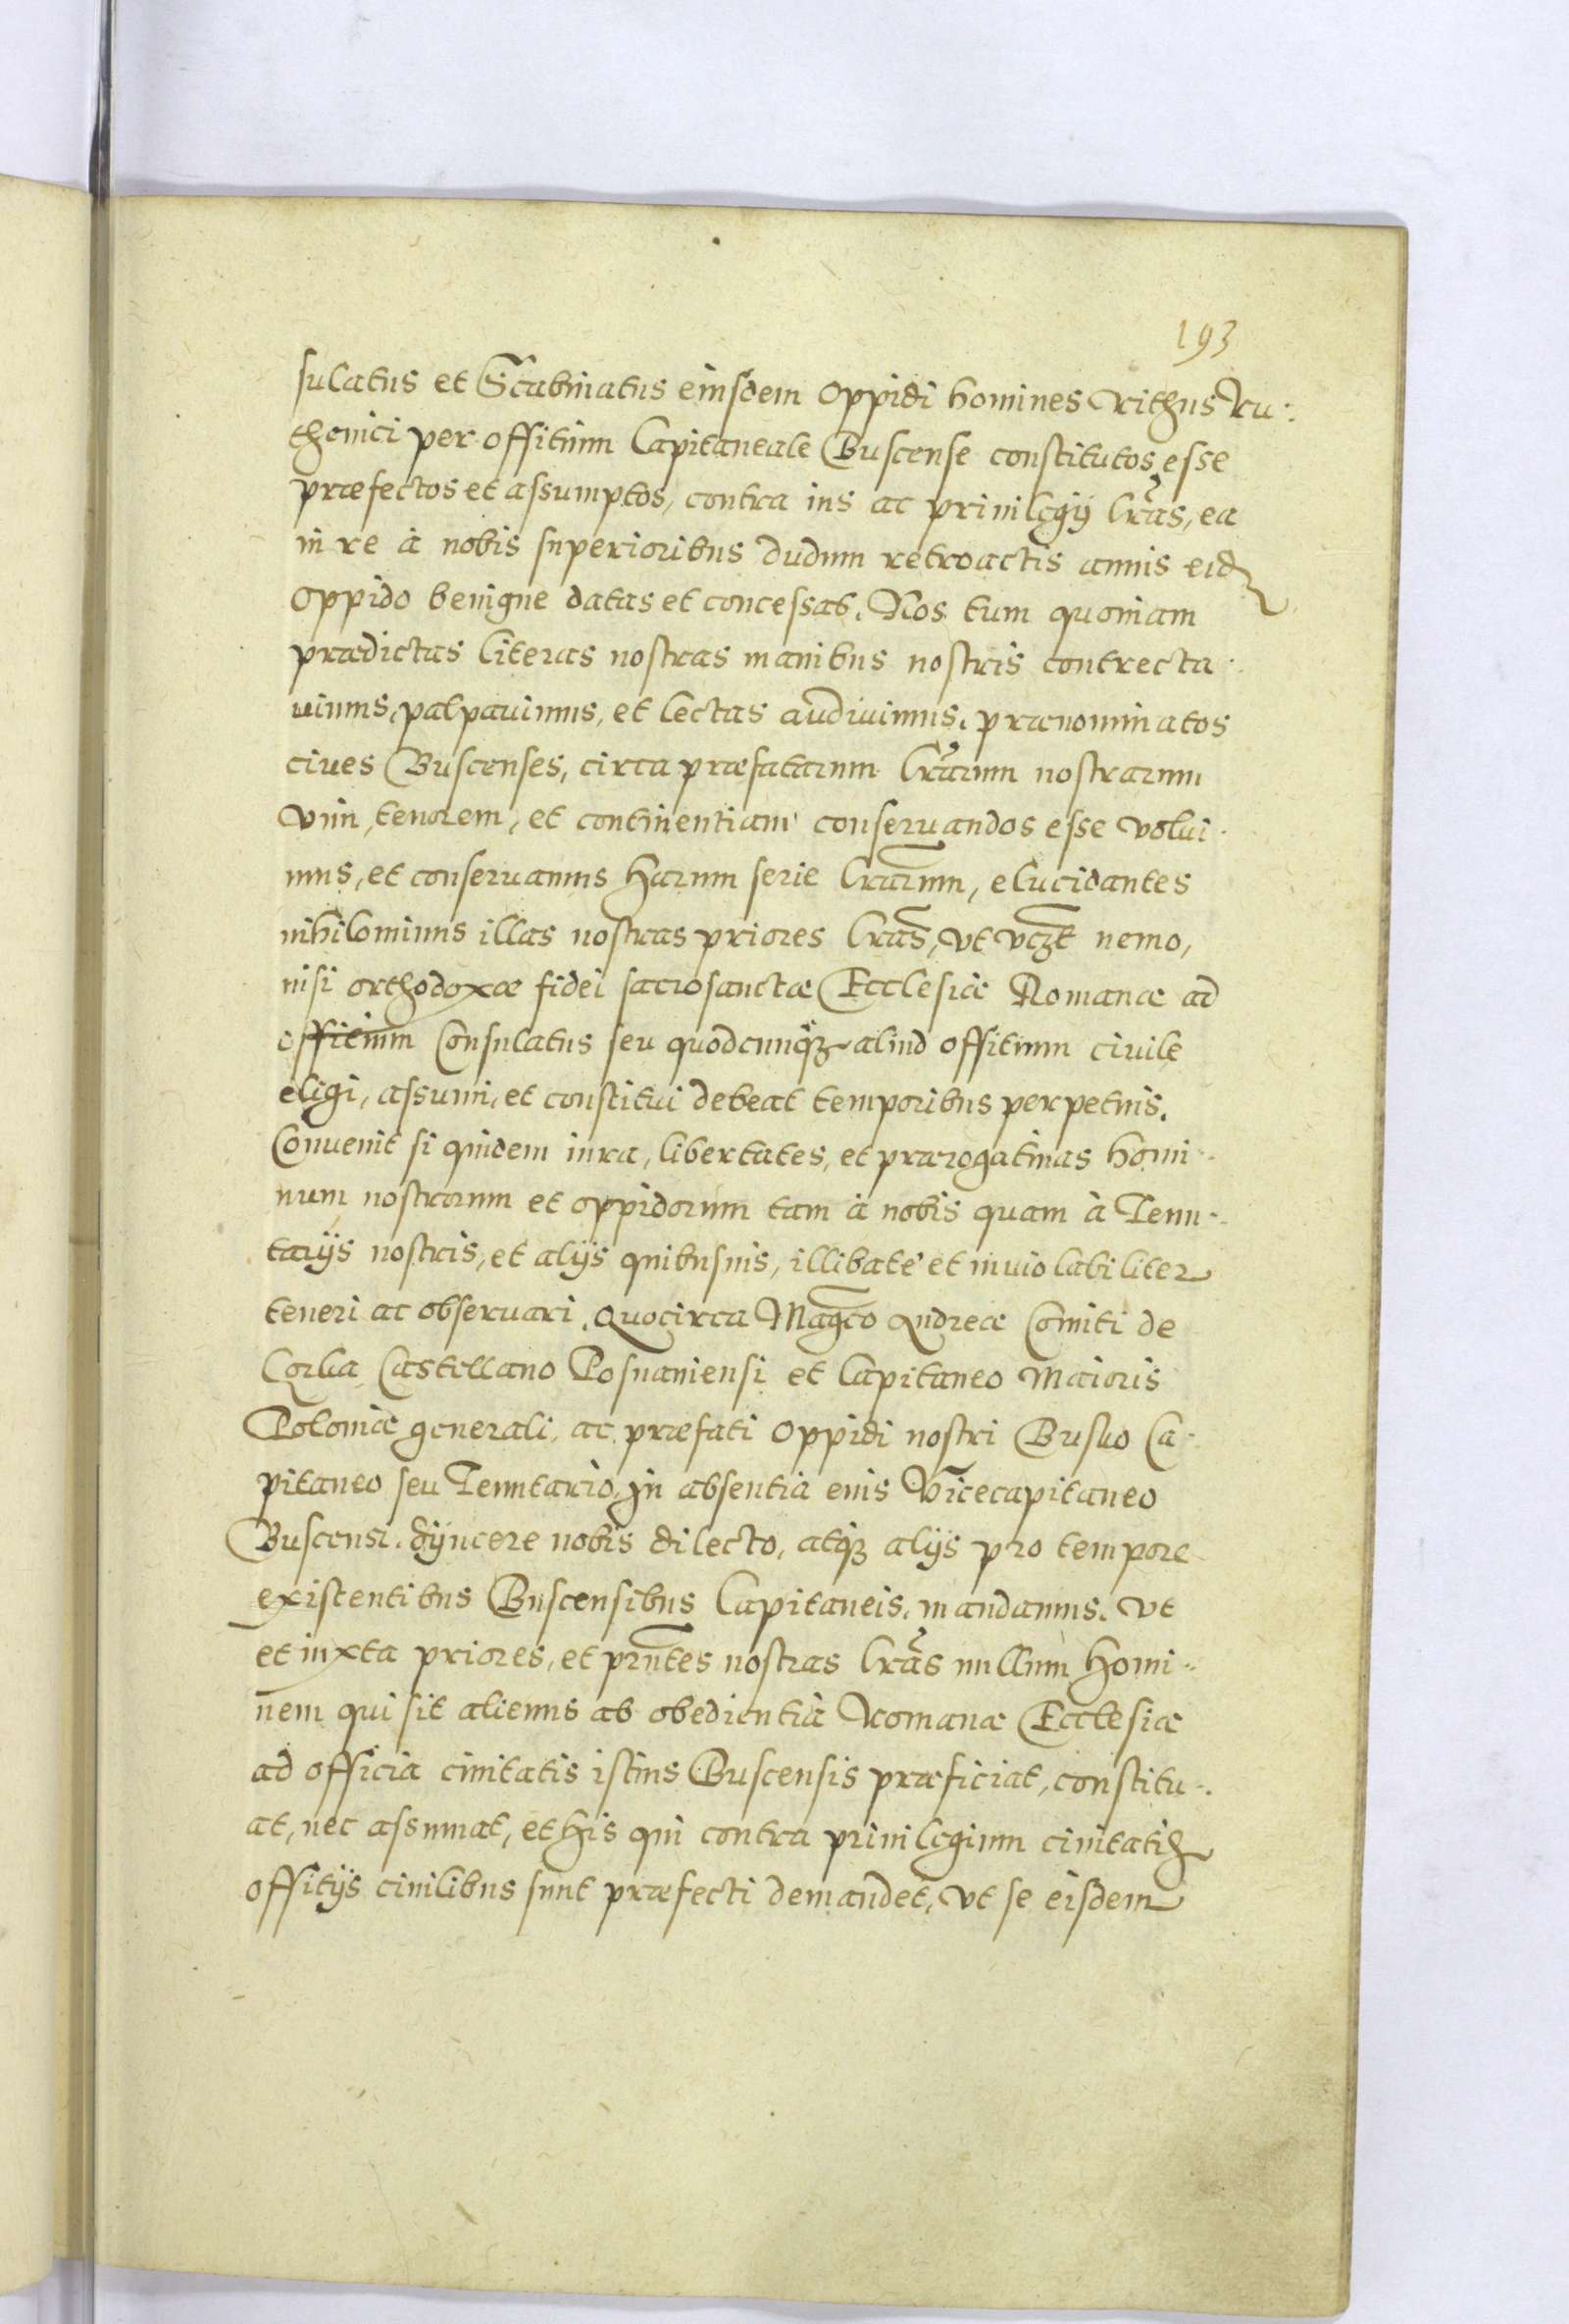 193
sulatus et Scabinatus eiusdem Oppidi homines Rithus Ru-
thenici per offitium Capitaneale Buscense constitutos esse
præfectos et assumptos, contra ius ac priuilegij lr̃as, ea
in re à nobis superioribus dudum retroactis annis eid
Oppido benigne datas et concessas. Nos tum quoniam
prædictas literas nostras manibus nostris contrecta-
uimus, palpauimus, et lectas audiuimus, prænominatos
ciues Buscenses, circa præfatarum lr̃arum nostrarum
vim, tenorem, et continentiam conseruandos esse volui-
mus, et conseruamus harum serie lr̃arum, elucidantes
nihilominus illas nostras priores lr̃as, vt vcz̃t nemo,
nisi orthodoxæ fidei sacrosanctæ Ecclesiæ Romanæ ad
offitium Consulatus seu quodcunqꝫ aliud offitium ciuile
eligi, assumi, et constitui debeat temporibus perpetuis.
Conuenit si quidem iura, libertates, et prærogatiuas homi-
num nostrorum et oppidorum tam à nobis quam à Tenu-
tarijs nostris, et alijs quibusuis, illibatè et inuiolabiliter
teneri ac obseruari. Quocirca Mag̃co Andreæ Comiti de
Gorka Castellano Posnaniensi et Capitaneo Maioris
Poloniæ generali, ac præfati Oppidi nostri Busko Ca-
pitaneo seu Tenutario, in absentia eius Vicecapitaneo
Buscensi, syncere nobis dilecto, atqꝫ alijs pro tempore
existentibus Buscensibus Capitaneis, mandamus. Vt
et iuxta priores, et pr̃ntes nostras lr̃as nullum homi-
nem qui sit alienus ab obedientia Romanæ Ecclesiæ
ad officia ciuitatis istius Buscensis præficiat, constitu-
at, nec assumat, et his qui contra priuilegium ciuitatis
offitijs ciuilibus sunt præfecti demandet, vt se eisdem